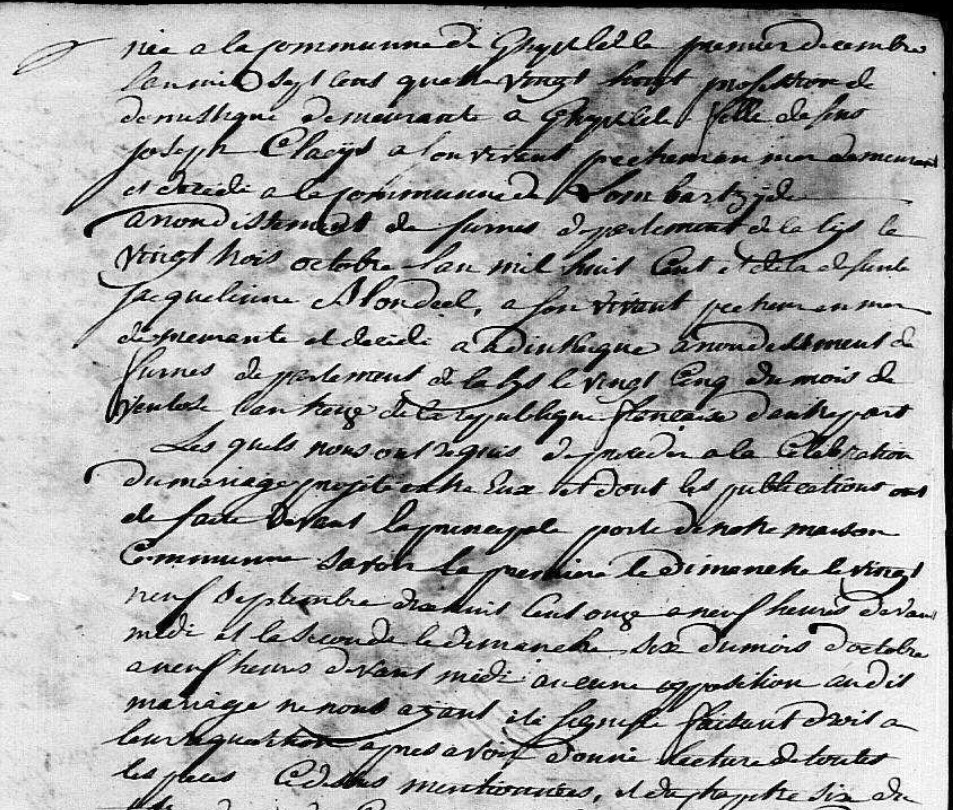 née a la communne de Ghyvelde le premier decembre
l'an mil sept cens quatre vingt huit profession de
domestique demeurante a Ghyvelde fille de feu
Joseph Claeys a son vivant pecheur en mer demeurant
et decedé a la communne de Lombartzyde
arrondissement de furnes departement de la lys le
vingt trois octobre l'an mil huit cent et de la defunte
Jacquelinne Blondeel, a son vivant pecheur en mer
demeurante et decedé a adinkerque arrondissement de
furnes departement de la lys le vingt cinq du mois de
ventose l'an treize de la republique francaise d'autre part
Les quels nous ont requis de proceder a la celebration
du mariage projeté entre Eux et dont les publications ont
eté faite devant la principale porte de notre maison
Communne savoir la premiere le dimanche le vingt
neuf septembre dix huit cent onze a neuf heures devant
midi et la seconde le dimanche six du mois d'octobre
a neuf heurs devant midi aucune opposition au dit
mariage ne nous ayant été signifié faisant droit a
leur requisition apres avoir donné lecture de toutes
les pieces Cidessus mentionnées, et du chapitre six du